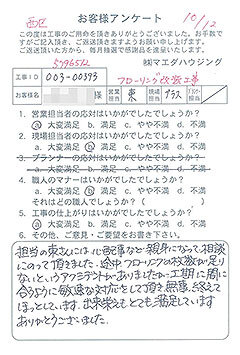 西区
10/12
お客様アンケート
この度は工事のご用命を頂きありがとうございました。お手数で
すがご記入頂き、ご返送頂きますようお願い申し上げます。
ご返送頂いた方から、毎月抽選で感謝品を進呈いたします。
㈱マエダハウジング
工事ID 003-00393 フローリング改修工事
お客様名 様 営業担当 東 現場担当
1. 営業担当者の対応はいかがでしたでしょうか?
a 大変満足 b. 満足 c. やや不満 d. 不満
2. 現場担当者の対応はいかがでしたでしょうか?
a 大変満足 b. 満足 c. やや不満 d. 不満
3. プランナーの応対はいかがでしたでしょうか?
a 大変満足 b. 満足 c. やや不満 d. 不満
4. 職人のマナーはいかがでしたでしょうか?
a. 大変満足 b 満足 c. やや不満 d. 不満
それはどの職人でしょうか?( )
5. 工事の仕上がりはいかがでしたでしょうか?
a 大変満足 b. 満足 c. やや不満 d. 不満
6. その他、ご意見・ご要望をお書き下さい。
担当の東さんには、心配事など親身になって相談
にのって頂きました。途中フローリングの枚数が足り
ないというアクシデントがありましたが、工期に間に
合うように敏速な対応をして頂き無事、終えて
ほっとしています。出来栄えもとても満足しています
ありがとうございました。